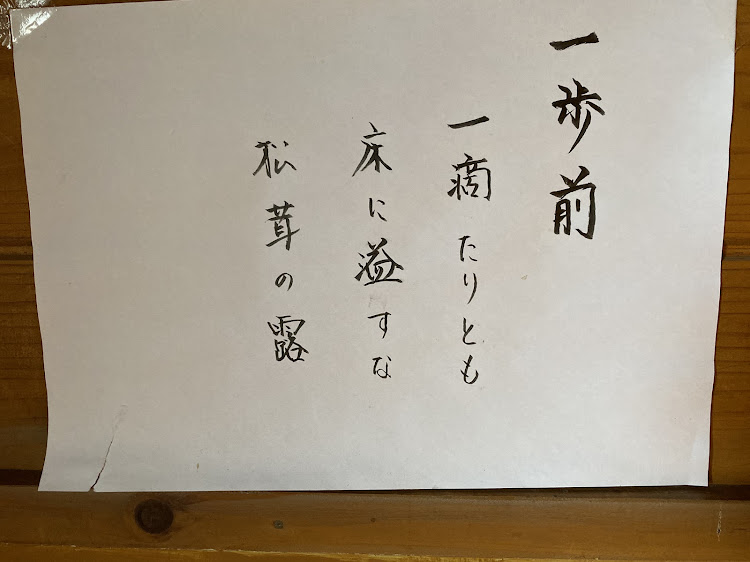 一歩前
一滴たりとも
床に溢すな
松茸の露